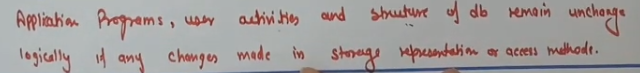 Application Programs, user activities and structure of db remain unchange
logically if any changes made in storage representation or access methods.